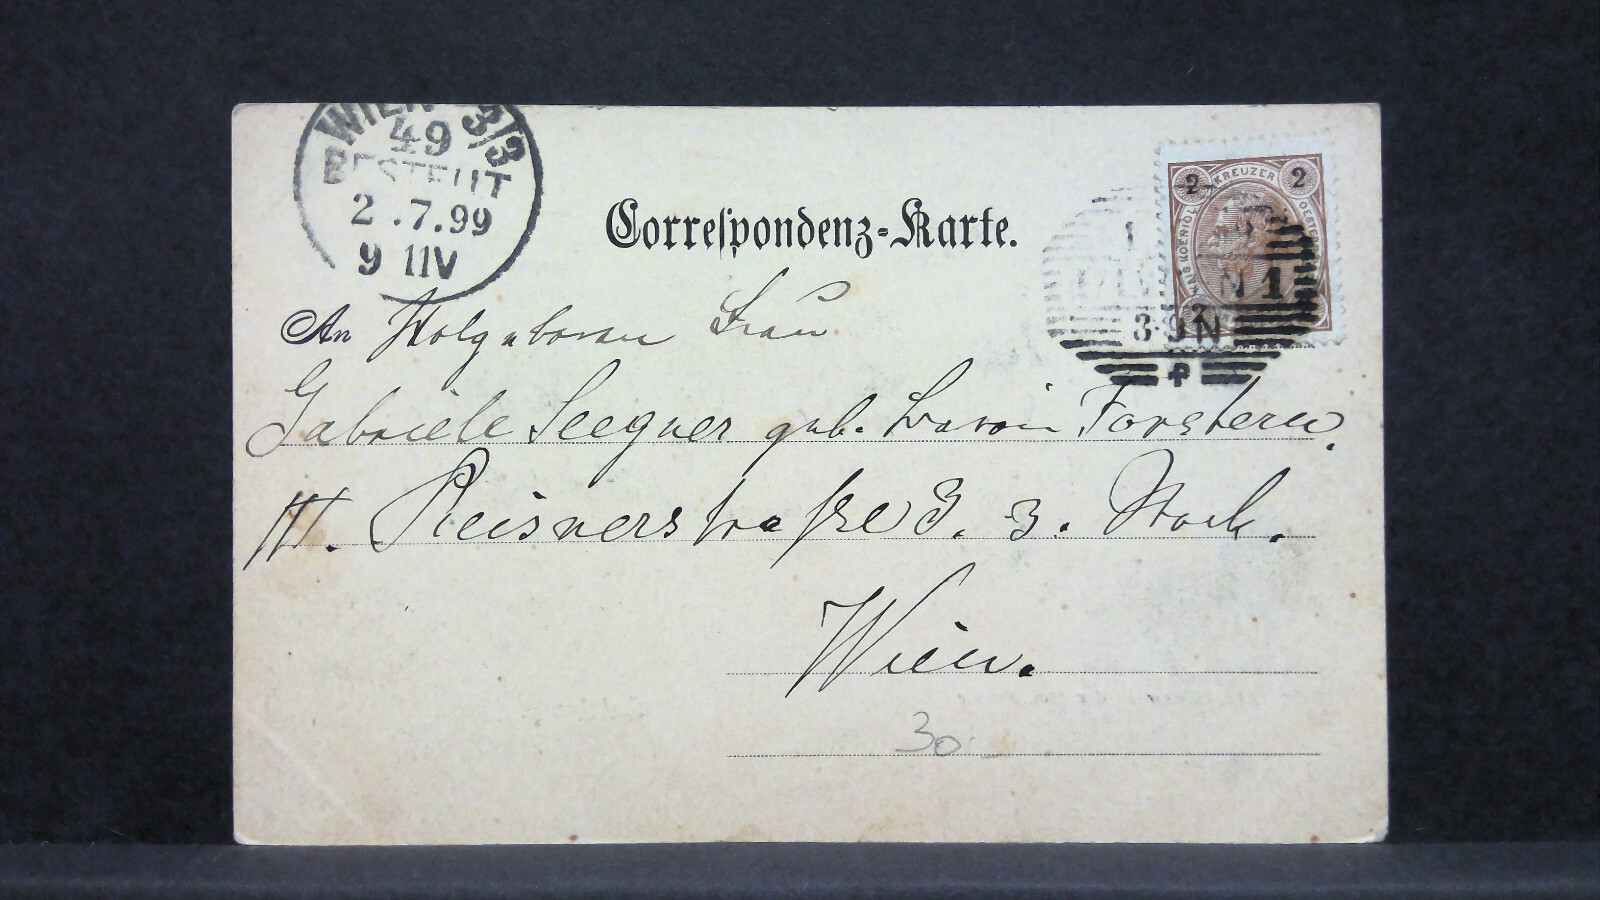 WIEN 3/3
49
BESTELLT
2.7.99
9 11V
Correspondenz-Karte.
2 KREUZER 2
3·9N
An Wolgeboren Frau
Gabriele Seegner geb. Baronin Forstern,
III. Reisnerstraße 3. 3. Stock.
Wien.
30